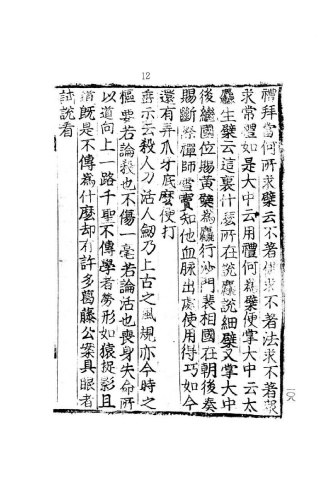 12
禮拜當何所求檗云不著佛求不著法求不著衆
求常禮如是大中云用禮何爲檗便掌大中云太
麤生檗云這裏什麽所在說麤說細檗又掌大中
後繼國位賜黃檗爲麤行沙門裴相國在朝後奏
賜斷際禪師雪竇知他血脉出處便用得巧如今
還有弄爪牙底麼便打
垂示云殺人刀活人劒乃上古之風規亦今時之
樞要若論殺也不傷一毫若論活也喪身失命所
以道向上一路千聖不傳學者勞形如猿捉影且
道旣是不傳爲什麼却有許多葛藤公案具眼者
試說看